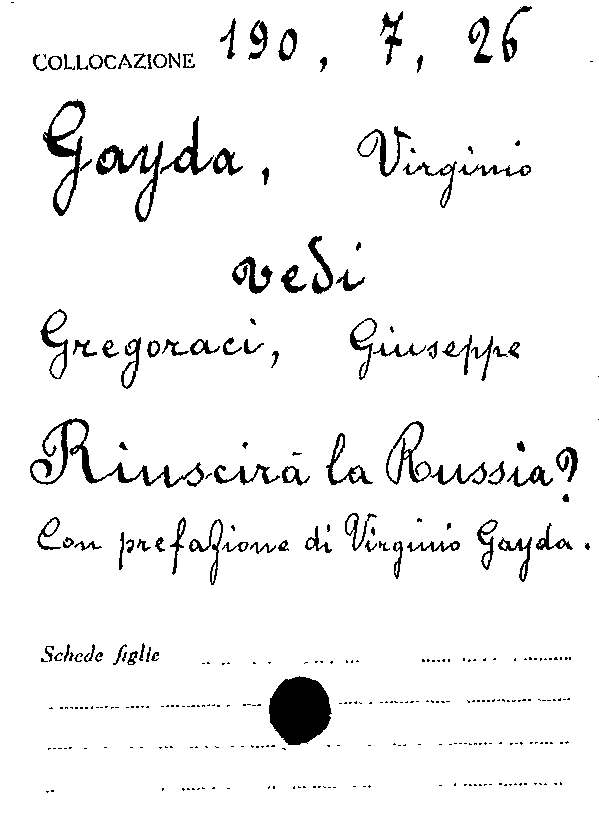 COLLOCAZIONE 190, 7, 26
Gayda, Virginio
vedi
Gregoraci, Giuseppe
Riuscirà la Russia?
Con prefazione di Virginio Gayda.
Schede figlie